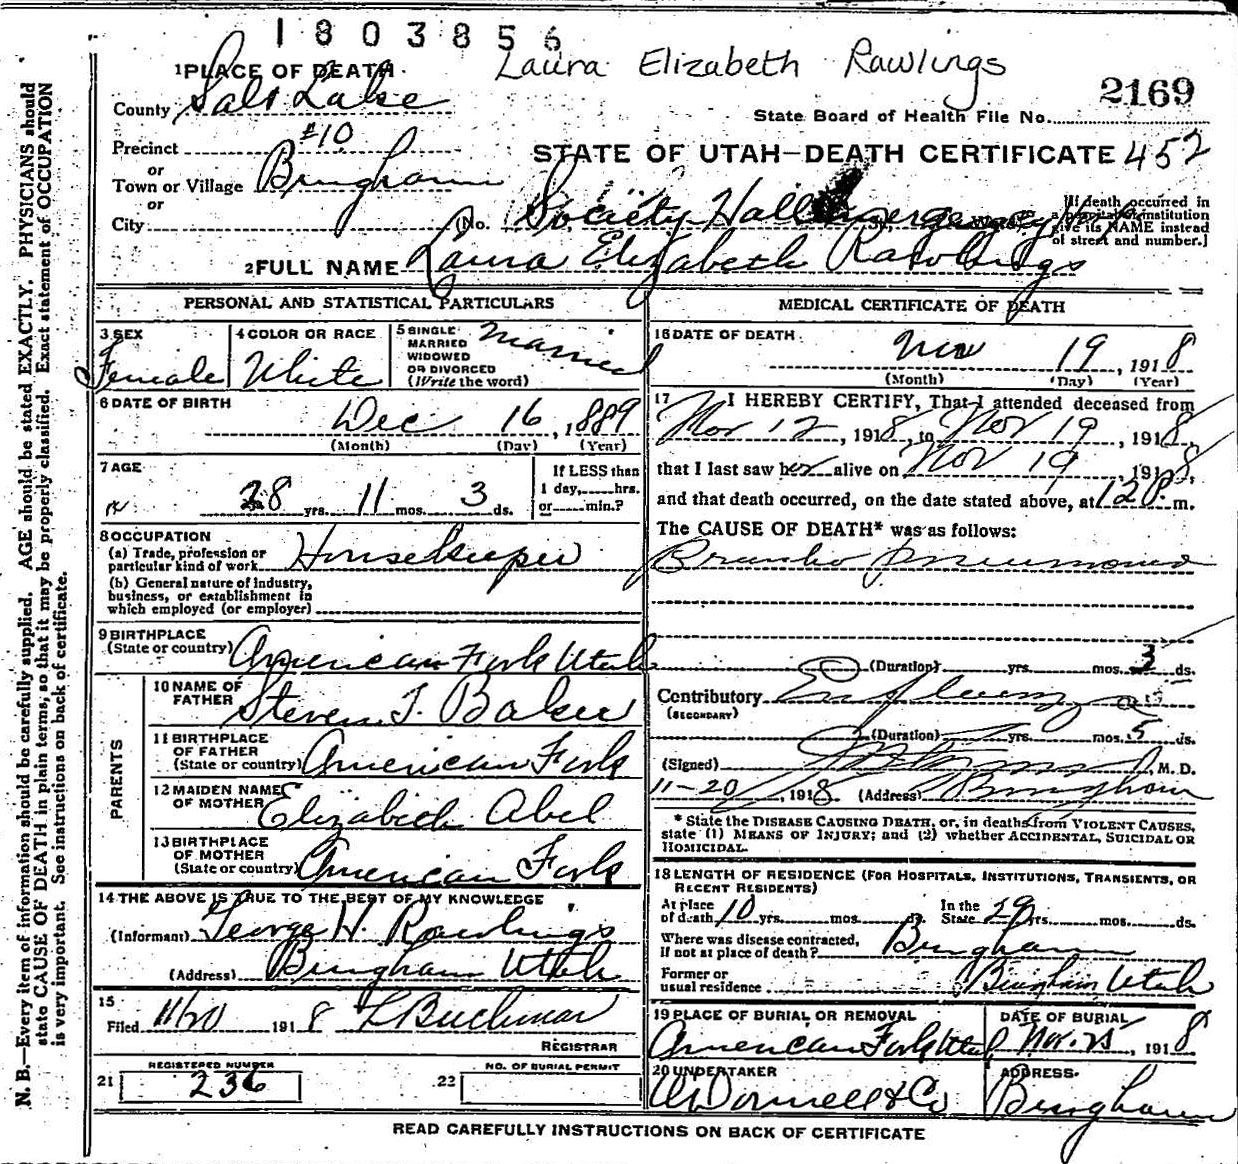 1803856
Laura Elizabeth Rawlings
1 PLACE OF DEATH
County Salt Lake
2169
State Board of Health File No.
Precinct #10
or
Town or Village Bingham
or
City
STATE OF UTAH—DEATH CERTIFICATE 452
(No. Society Hall Emergency
[If death occurred in
a hospital or institution
give its NAME instead
of street and number.]
2 FULL NAME Laura Elizabeth Rawlings
PERSONAL AND STATISTICAL PARTICULARS
3 SEX
Female
4 COLOR OR RACE
White
5 SINGLE
MARRIED
WIDOWED
OR DIVORCED
(Write the word)
Married
6 DATE OF BIRTH
Dec 16, 1889
(Month) (Day) (Year)
7 AGE
28 yrs. 11 mos. 3 ds.
If LESS than
1 day,......hrs.
or......min.?
8 OCCUPATION
(a) Trade, profession or
particular kind of work Housekeeper
(b) General nature of industry,
business, or establishment in
which employed (or employer)
9 BIRTHPLACE
(State or country) American Fork Utah
PARENTS
10 NAME OF
FATHER Steven T. Baker
11 BIRTHPLACE
OF FATHER
(State or country) American Fork
12 MAIDEN NAME
OF MOTHER Elizabeth Abel
13 BIRTHPLACE
OF MOTHER
(State or country) American Fork
14 THE ABOVE IS TRUE TO THE BEST OF MY KNOWLEDGE
(Informant) George H. Rawlings
(Address) Bingham Utah
15
Filed 11/20 1918 Buchman
REGISTRAR
REGISTERED NUMBER
21 236
NO. OF BURIAL PERMIT
22
MEDICAL CERTIFICATE OF DEATH
16 DATE OF DEATH
Nov 19, 1918
(Month) (Day) (Year)
17 I HEREBY CERTIFY, That I attended deceased from
Nov 12, 1918, to Nov 19, 1918,
that I last saw her alive on Nov 19, 1918,
and that death occurred, on the date stated above, at 120 P. m.
The CAUSE OF DEATH* was as follows:
Broncho pneumonia
(Duration) yrs. mos. 3 ds.
Contributory Influenza
(SECONDARY)
(Duration) yrs. mos. 5 ds.
(Signed) , M. D.
11-20, 1918 (Address) Bingham
* State the DISEASE CAUSING DEATH, or, in deaths from VIOLENT CAUSES,
state (1) MEANS OF INJURY; and (2) whether ACCIDENTAL, SUICIDAL OR
HOMICIDAL.
18 LENGTH OF RESIDENCE (FOR HOSPITALS, INSTITUTIONS, TRANSIENTS, OR
RECENT RESIDENTS)
At place
of death 10 yrs. mos. ds.
In the
State 29 yrs. mos. ds.
Where was disease contracted,
if not at place of death? Bingham
Former or
usual residence Bingham Utah
19 PLACE OF BURIAL OR REMOVAL
American Fork Utah
DATE OF BURIAL
Nov. 25, 1918
20 UNDERTAKER
O'Donnell & Co
ADDRESS
Bingham
READ CAREFULLY INSTRUCTIONS ON BACK OF CERTIFICATE
N. B.—Every item of information should be carefully supplied. AGE should be stated EXACTLY. PHYSICIANS should
state CAUSE OF DEATH in plain terms, so that it may be properly classified. Exact statement of OCCUPATION
is very important. See instructions on back of certificate.